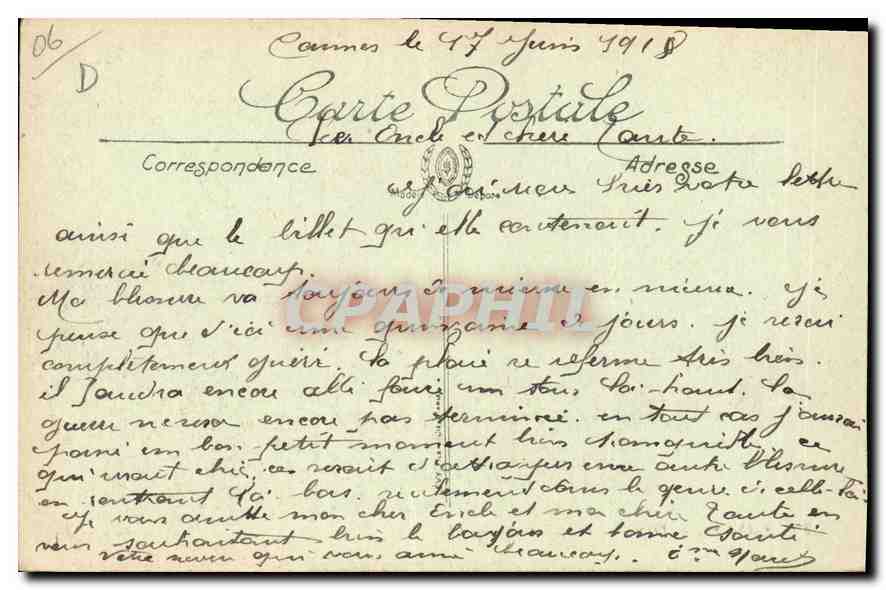 06
D
Cannes le 17 Juin 1918
Carte Postale
Cher Oncle et chère Tante.
Correspondance
Adresse
J'ai reçu hier votre lettre
ainsi que le billet qu'elle contenait. Je vous
remercie beaucoup.
Ma blessure va toujours de mieux en mieux. Je
pense que d'ici une quinzaine de jours. Je serai
complètement guéri. La plaie se referme très bien.
il faudra encore aller faire un tour là-haut. La
guerre ne sera encore pas terminée. en tout cas j'aurai
passé un bon petit moment bien tranquille, ce
qui serait chic, ce serait d'attraper une autre blessure
en rentrant là-bas. seulement dans le genre de celle-là.
Je vous quitte mon cher Oncle et ma chère Tante en
vous souhaitant bien le bonjour et bonne santé
Votre neveu qui vous aime beaucoup.
CPAPHIL